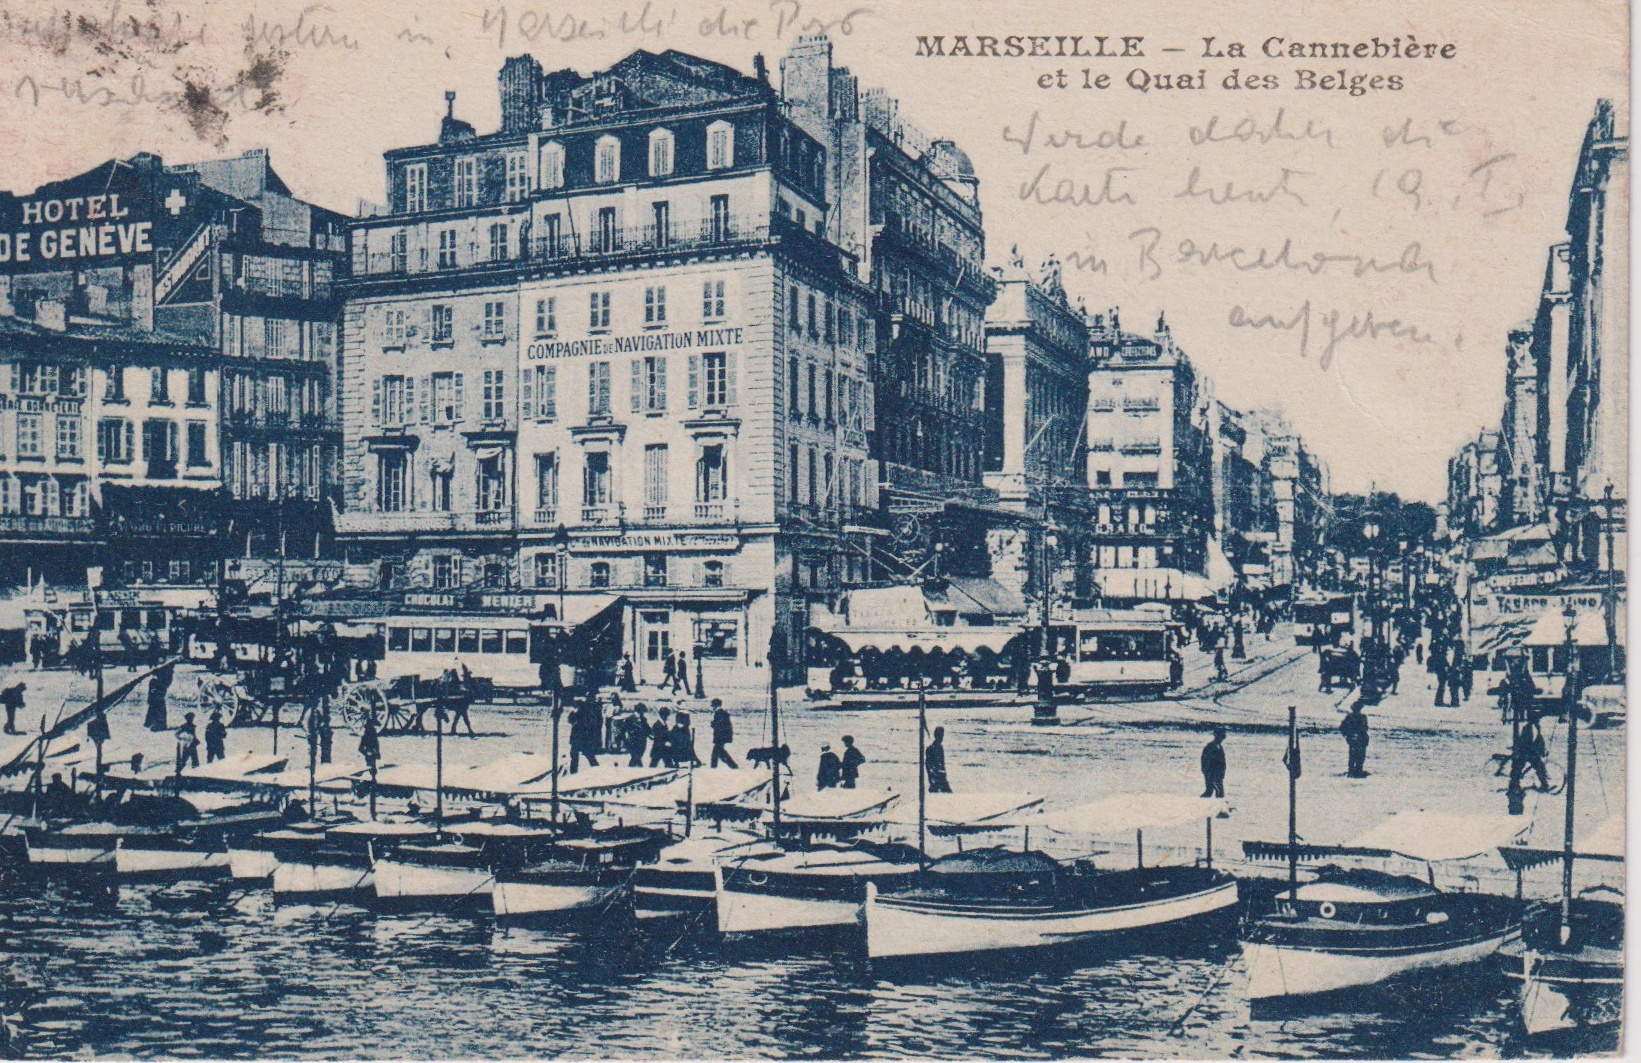 gestern in Marseille die Post
MARSEILLE – La Cannebière
et le Quai des Belges
Werde daher die
Karte heute, 19. I.
in Barcelona
aufgeben.
HOTEL
DE GENÈVE
COMPAGNIE DE NAVIGATION MIXTE
DE NAVIGATION MIXTE
CHOCOLAT MENIER